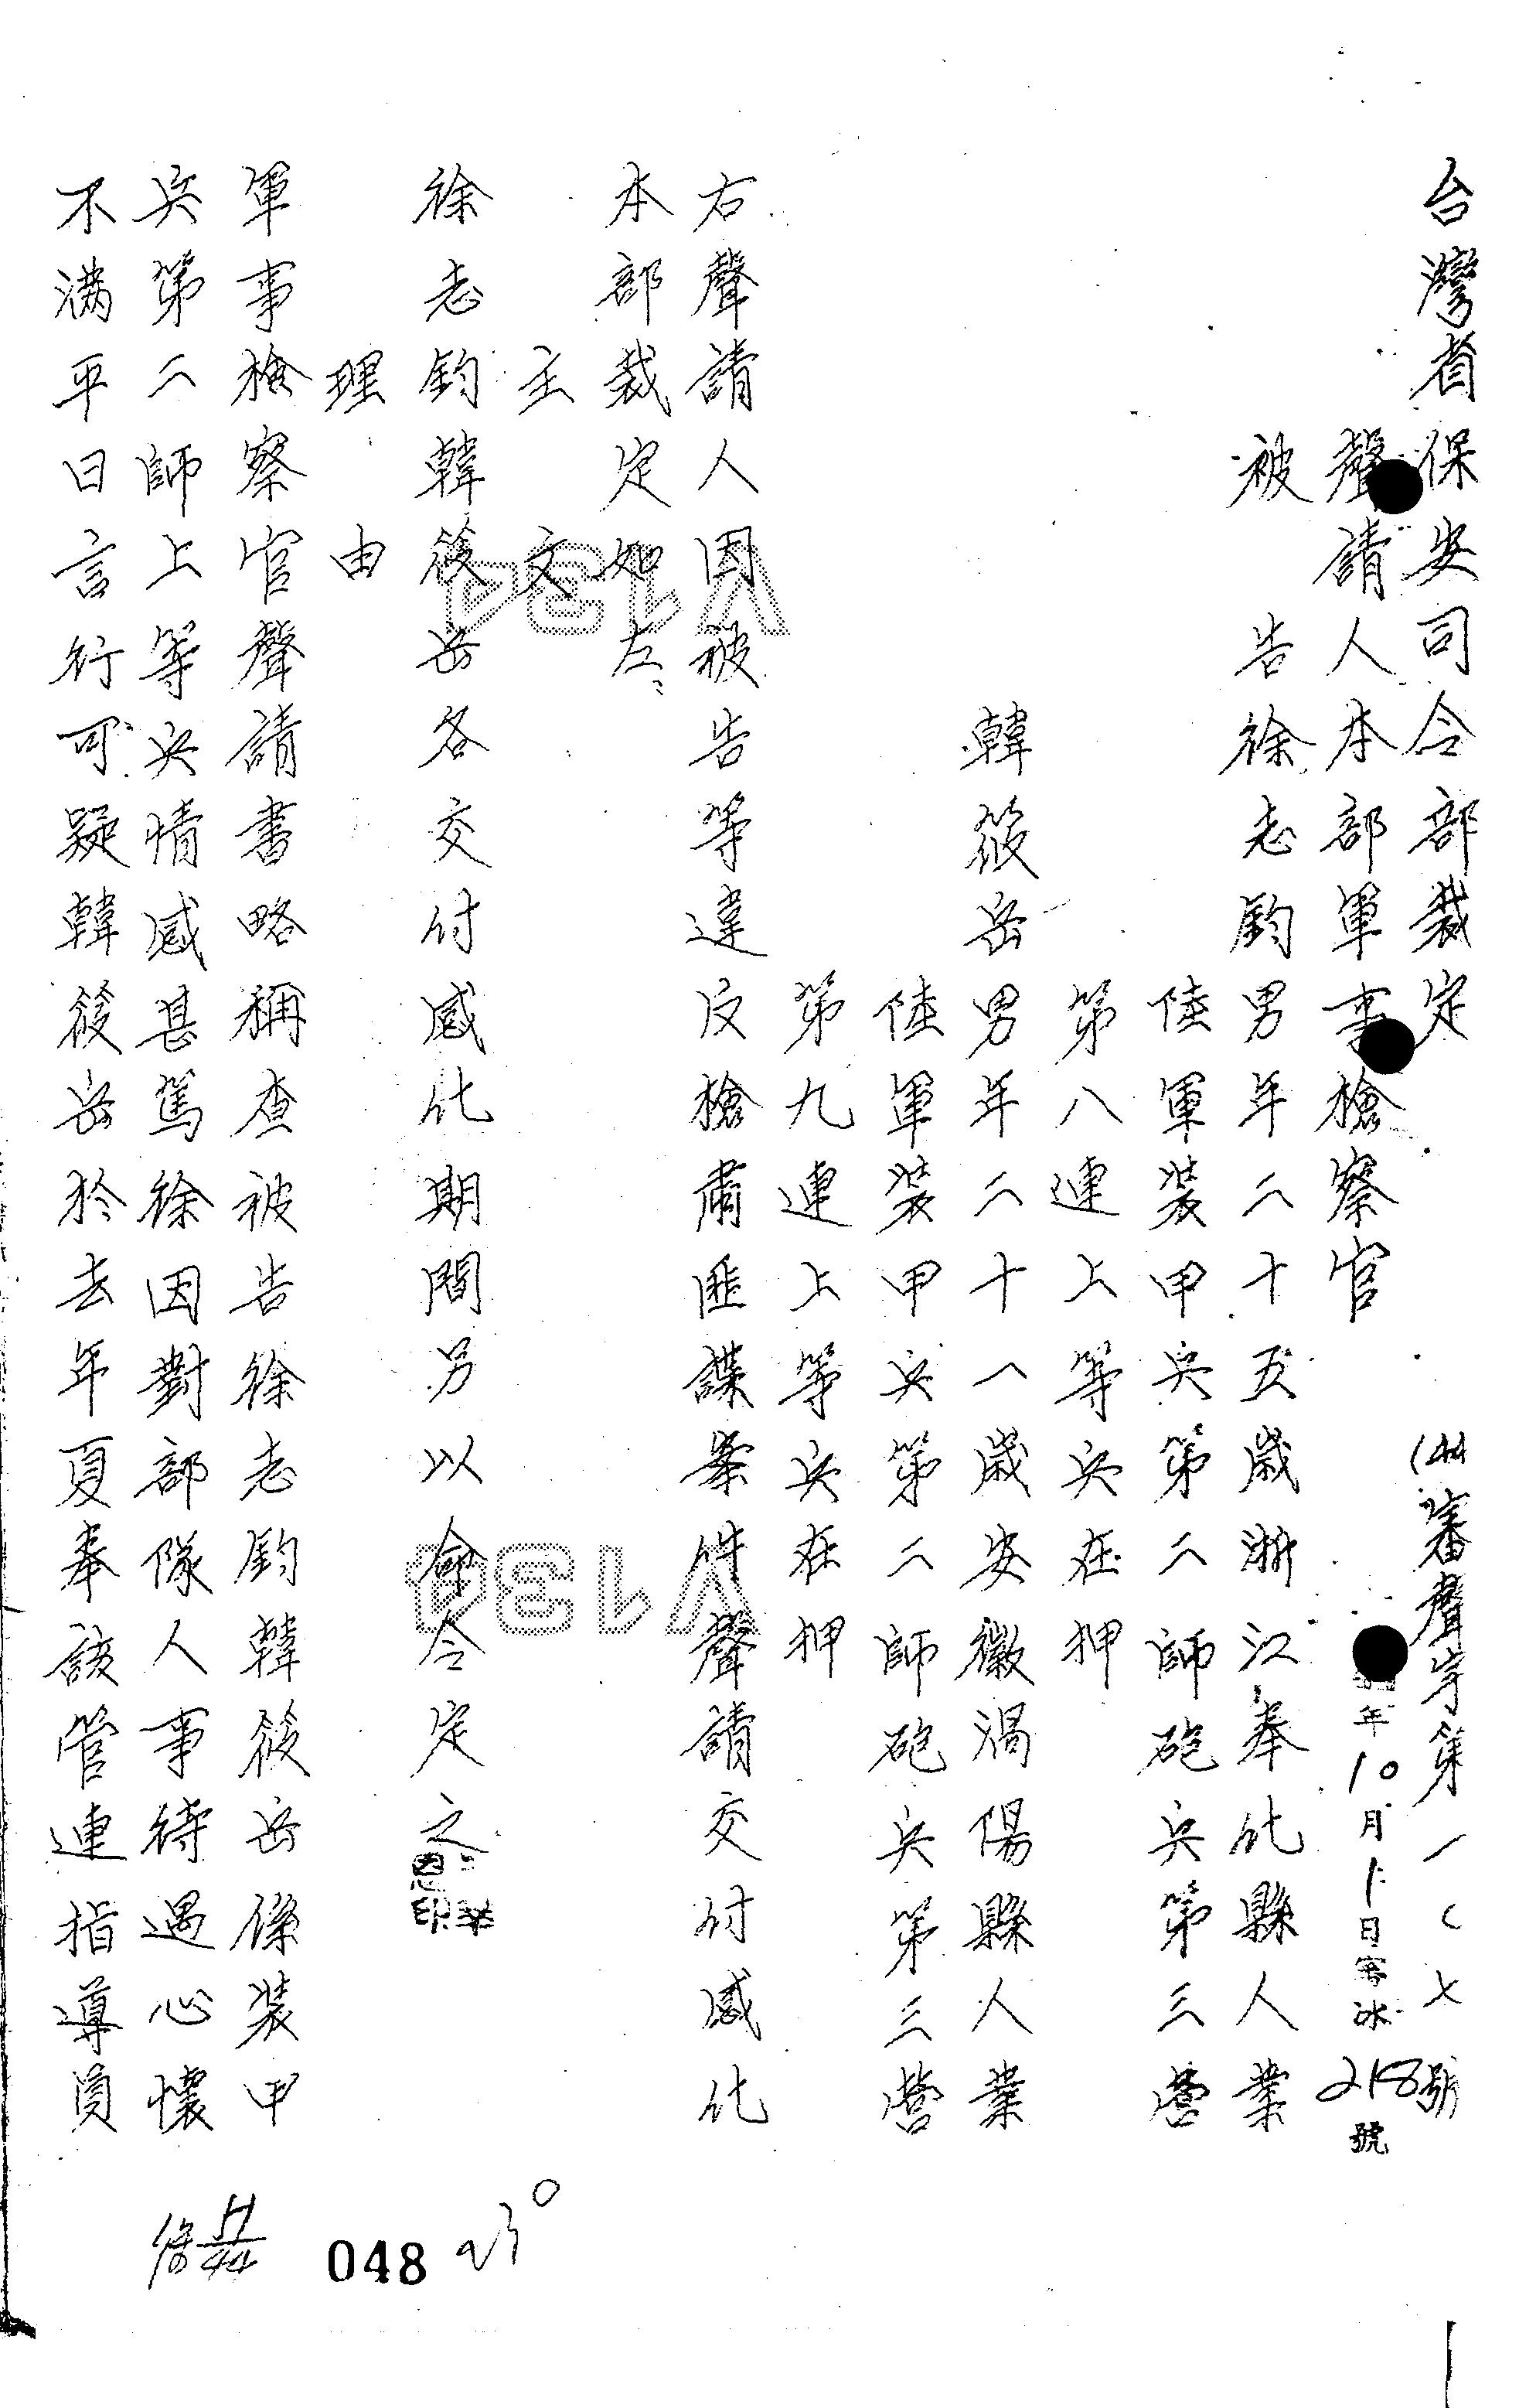 台灣省保安司令部裁定
(44)審聲字第一〇七號
聲請人本部軍事檢察官
年10月1日 218號
被告徐志鈞男年二十五歲浙江奉化縣人業
陸軍裝甲兵第二師砲兵第三營
第八連上等兵在押
韓筱岳男年二十八歲安徽渦陽縣人業
陸軍裝甲兵第二師砲兵第三營
第九連上等兵在押
右聲請人因被告等違反檢肅匪諜案件聲請交付感化
本部裁定如左:
主文
徐志鈞韓筱岳各交付感化期間另以命令定之
理由
軍事檢察官聲請書略稱查被告徐志鈞韓筱岳係裝甲
兵第二師上等兵情感甚篤徐因對部隊人事待遇心懷
不滿平日言行可疑韓筱岳於去年夏奉該管連指導員
048